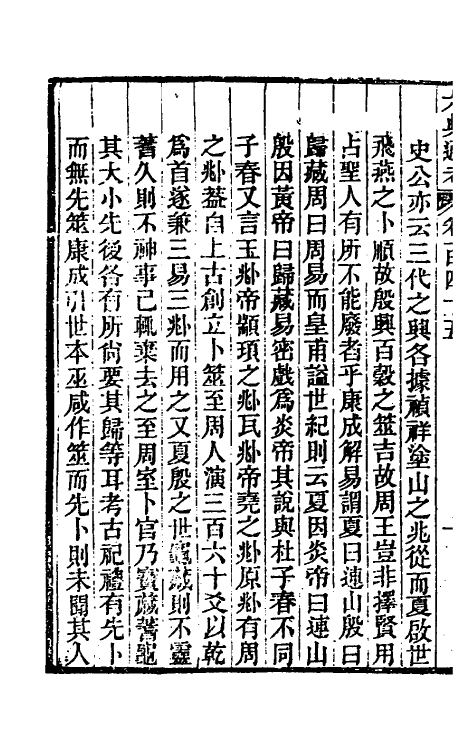 六典通考 卷百四十五 一
史公亦云三代之興各據禎祥塗山之兆從而夏啟世
飛燕之卜順故殷興百穀之筮吉故周王豈非擇賢用
占聖人有所不能廢者乎康成解易謂夏曰連山殷曰
歸藏周曰周易而皇甫謐世紀則云夏因炎帝曰連山
殷因黃帝曰歸藏易宓戲為炎帝其說與杜子春不同
子春又言玉𠧞帝顓頊之𠧞瓦𠧞帝堯之𠧞原𠧞有周
之𠧞葢自上古創立卜筮至周人演三百六十爻以乾
為首遂兼三易三𠧞而用之又夏殷之世龜藏則不靈
蓍久則不神事已輒棄去之至周室卜官乃寶藏蓍龜
其大小先後各有所尚要其歸等耳考古祀禮有先卜
而無先筮康成引世本巫咸作筮而先卜則未聞其人